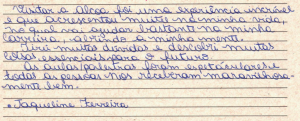 Visitar a Alcoa foi uma experiência incrível
e que acrescentou muito na minha vida,
no qual vai ajudar bastante na minha
carreira, abrindo a minha mente.
Tirei muitas dúvidas e descobri muitas
coisas essenciais para o futuro.
As aulas/palestras foram espetaculares e
todas as pessoas nos receberam maravilhosa-
mente bem.
• Jaqueline Ferreira